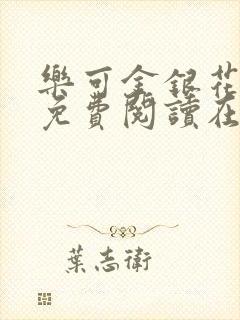 樂可金銀花
免費閱讀在
葉志衛